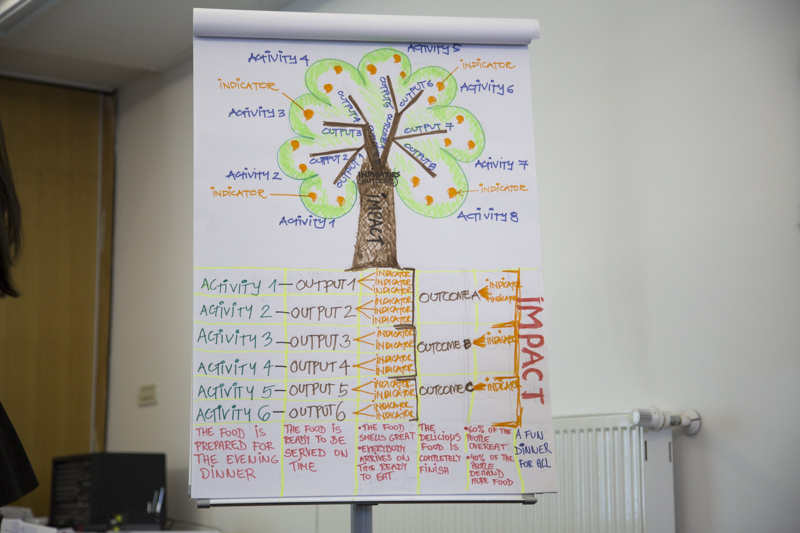 ACTIVITY 5
ACTIVITY 4
INDICATOR
INDICATOR
ACTIVITY 6
ACTIVITY 3
OUTPUT 6
OUTPUT 3
OUTPUT 7
OUTPUT 2
OUTPUT 1
OUTPUT 8
ACTIVITY 7
ACTIVITY 2
INDICATOR
INDICATOR
INDICATORS
ACTIVITY 1
ACTIVITY 8
IMPACT
ACTIVITY 1 OUTPUT 1
INDICATOR
INDICATOR
INDICATOR
OUTCOME A
INDICATOR
ACTIVITY 2 OUTPUT 2
INDICATOR
INDICATOR
INDICATOR
ACTIVITY 3 OUTPUT 3
INDICATOR
INDICATOR
OUTCOME B
INDICATOR
ACTIVITY 4 OUTPUT 4
INDICATOR
INDICATOR
ACTIVITY 5 OUTPUT 5
INDICATOR
INDICATOR
OUTCOME C
INDICATOR
ACTIVITY 6 OUTPUT 6
INDICATOR
INDICATOR
IMPACT
THE FOOD IS
PREPARED FOR
THE EVENING
DINNER
THE FOOD IS
READY TO BE
SERVED ON
TIME
• THE FOOD
SMELLS GREAT
• EVERYBODY
ARRIVES ON
TIME READY
TO EAT
THE
DELICIOUS
FOOD IS
COMPLETELY
FINISH
• 60% OF THE
PEOPLE
OVEREAT
• 40% OF THE
PEOPLE
DEMAND
MORE FOOD
A FUN
DINNER
FOR ALL